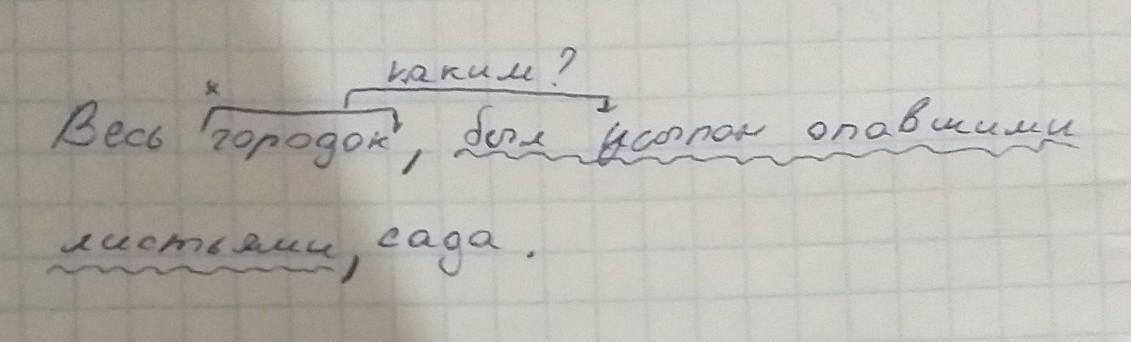 каким?
Весь городок, был усыпан опавшими
листьями, сада.